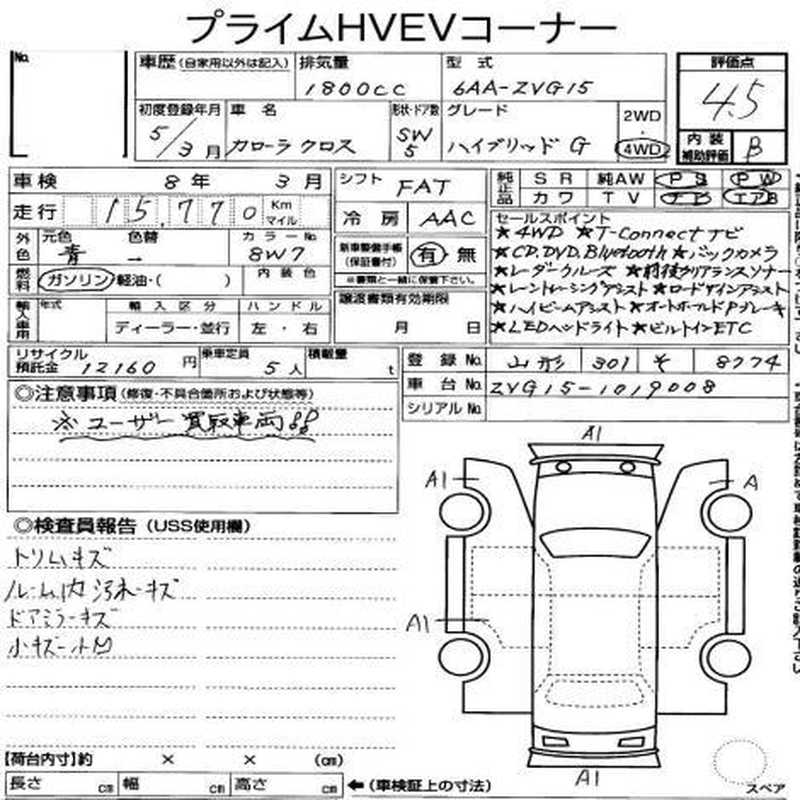 プライムHVEVコーナー
No.
車歴(自家用以外は記入) 排気量 1800cc 型式 6AA-ZVG15 評価点 4.5
初度登録年月 5/3月 車名 カローラ クロス 形状・ドア数 SW 5 グレード ハイブリッド G 2WD・4WD 内装補助評価 B
車検 8年 3月 シフト FAT 純正品 SR 純AW PS PW
走行 15,770 Km マイル 冷房 AAC カワ TV ナビ エアB
外色 元色 青 色替 ー カラーNo. 8W7 新車整備手帳(保証書付) 有・無 ※書類と一緒に保管下さい。
燃料 ガソリン・軽油・( ) 内装色
輸入車用 年式 輸入区分 ディーラー・並行 ハンドル 左・右 譲渡書類有効期限 月 日
セールスポイント
★4WD ★T-Connectナビ
★CD,DVD,Bluetooth ★バックカメラ
★レーダークルーズ ★前後クリアランスソナー
★レーントレーシングアシスト ★ロードサインアシスト
★ハイビームアシスト ★オートホールドPブレーキ
★LEDヘッドライト ★ビルトインETC
リサイクル預託金 12160円 乗車定員 5人 積載量 t
登録No. 山形 301 そ 8774
車台No. ZVG15-1019008
シリアルNo.
◎注意事項(修復・不具合箇所および状態等)
※ユーザー買取車両
◎検査員報告(USS使用欄)
トリムキズ
ルーム内汚れキズ
ドアミラーキズ
小キズ
A1
A1 A
A1
A1
【荷台内寸】約 × × (cm)
長さ cm 幅 cm 高さ cm ←(車検証上の寸法)
スペア